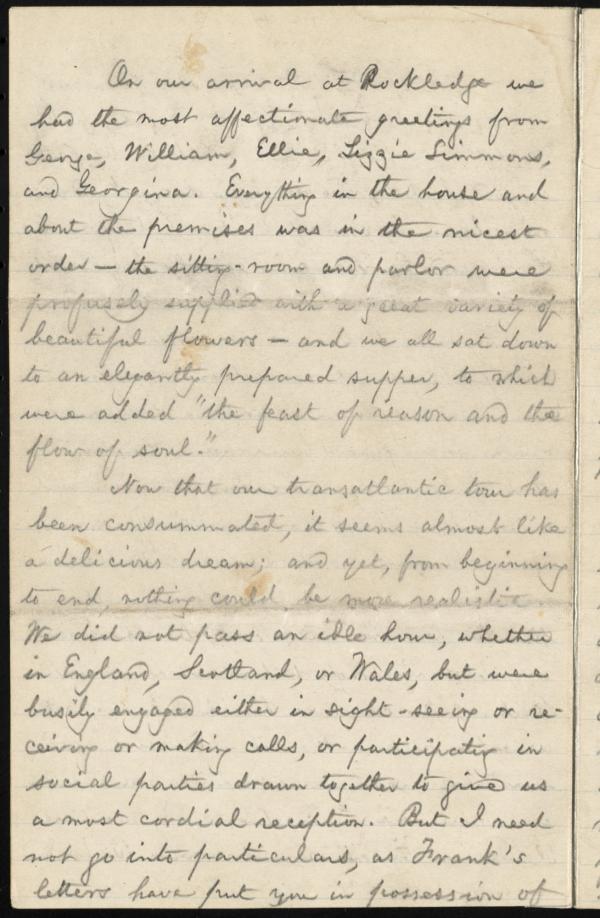 On our arrival at Rockledge we
had the most affectionate greetings from
George, William, Ellie, Lizzie Simmons,
and Georgina. Everything in the house and
about the premises was in the nicest
order — the sitting-room and parlor were
profusely supplied with a great variety of
beautiful flowers — and we all sat down
to an elegantly prepared supper, to which
were added "the feast of reason and the
flow of soul."
Now that our transatlantic tour has
been consummated, it seems almost like
a delicious dream; and yet, from beginning
to end, nothing could be more realistic.
We did not pass an idle hour, whether
in England, Scotland, or Wales, but were
busily engaged either in sight-seeing or re-
ceiving or making calls, or participating in
social parties drawn together to give us
a most cordial reception. But I need
not go into particulars, as Frank's
letters have put you in possession of